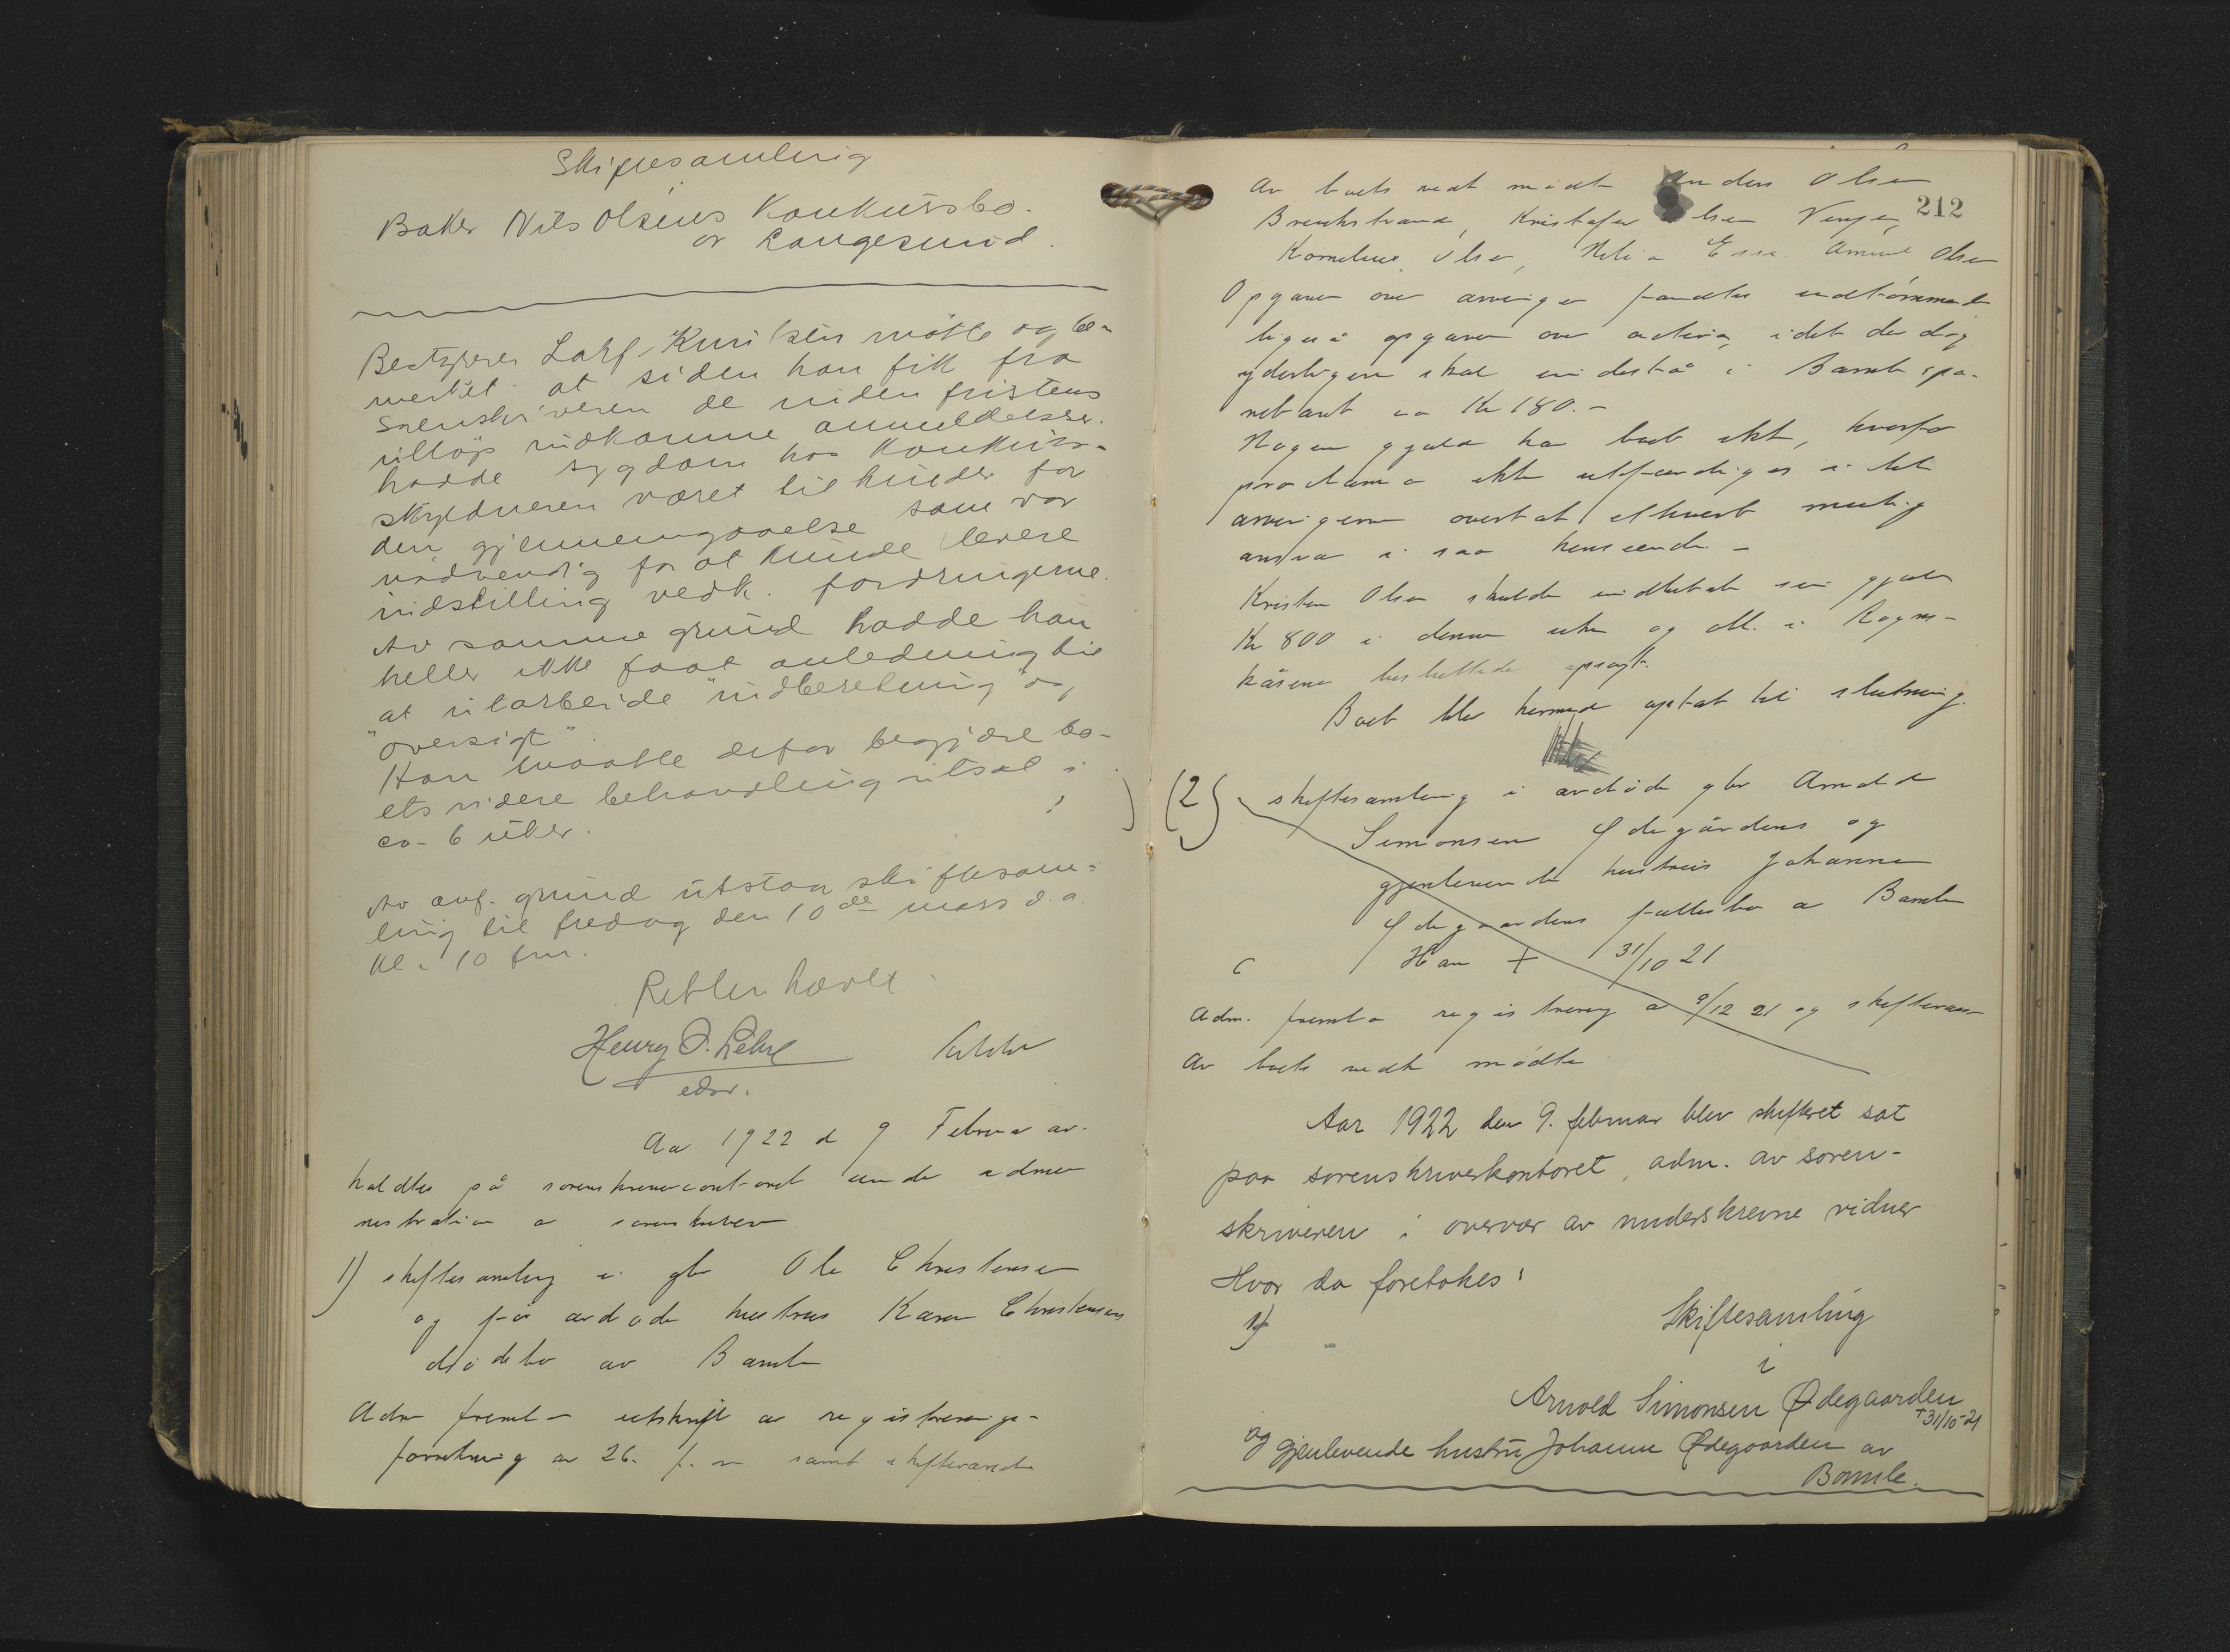 Skiftesamling
Baker Nils Olsens Konkursbo.
av Langesund.
Bestyrer Lahf. Knutsen møtte og be-
merket at siden han fik fra
sorenskriveren de inden fristens
utløp indkomne anmeldelser.
hadde sygdom hos konkurs-
skyldneren været til hinder for
den gjennemgaaelse som var
nødvendig for at kunde levere
indstilling vedk. fordringerne.
Av samme grund hadde han
heller ikke faat anledning til
at utarbeide "indberetning" og
"oversigt".
Han maatte derfor begjære bo-
ets videre behandling utsat i
ca. 6 uker.
Av anf. grund utstaar skiftesam-
ling til fredag den 10de mars d.a.
kl. 10 fm.
Retten hævet.
Henry O. Lehre
edsv.
Aar 1922 d 9 Februar av-
holdtes på sorenskrivercontoret under admi
nistration a sorenskriver
1) skiftesamling i gbr Ole Christensen
og før avdøde hustrus Karen Christensens
dødsbo av Bamle
Adm fremla utskrift av registrerings-
forretning av 26. f. m samt skiftevarsler
212
Av boets vedk mødte Anders Olsen
Kristofer Olsen
Kornelius Olsen, Olsen
Opgaver over arvinger fandtes uttømmende
ligeså opgaver over activa, idet der dog
yderligere skal indestå i Bamle spa-
rebank ca Kr 180.-
Nogen gjæld har boet ikke, hvorfor
proclama ikke utfærdiges idet
arvingerne overtok ethvert mulig
ansvar i saa henseende. -
Kristen Olsen skulde indbetale sin gjæld
Kr 800 i denne uke og
besluttedes opsagt.
Boet blev hermed optat til slutning.
(2) skiftesamling i avdøde gbr Arnold
Simonsen Ødegårdens og
gjenlevende hustrus Johanne
Ødegaardens fællesbo a Bamle
Han + 31/10 21
Adm. fremla registrering a 9/12 21 og skiftevars
Av boets vedk mødte
Aar 1922 den 9. februar blev skifteret sat
paa sorenskriverkontoret, adm. av soren-
skriveren i overvær av underskrevne vidner
Hvor da foretokes:
1)
Skiftesamling
i
Arnold Simonsen Ødegaarden
+31/10-21
og gjenlevende hustru Johanne Ødegaarden av
Bamle.